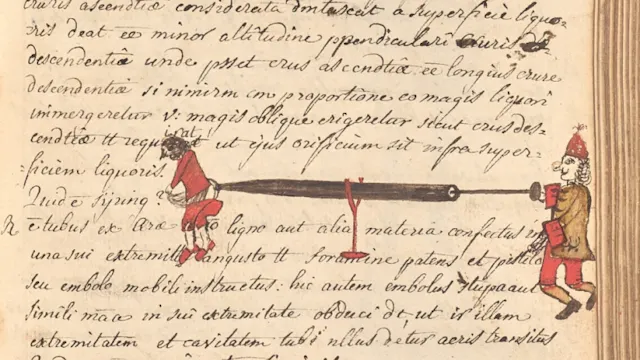 cruris ascendtiæ considerata dmtaxat a superficie liquo=
ris deat eē minor altitudine ppendiculari cruris
descendentiæ unde psset crus ascendtiæ eē longius crure
descendentiæ si nimirm in proportione eo magis liquori
immergeretur v: magis oblique erigeretur sicut crus des=
cendtiæ tt requirat ut ejus orificium sit infra super=
ficiem liquoris.
Quid e siring?
R ē tubus ex ære ligno aut alia materia confectus in
una sui extremitate angusto tt foramine patens et pistelo
seu embolo mobili instructus: hic autem embolus stupa aut
simili mãa in sui extremitate obduci dēt, ut is illam
extremitatem et cavitatem tubi nllus detur aeris transitus